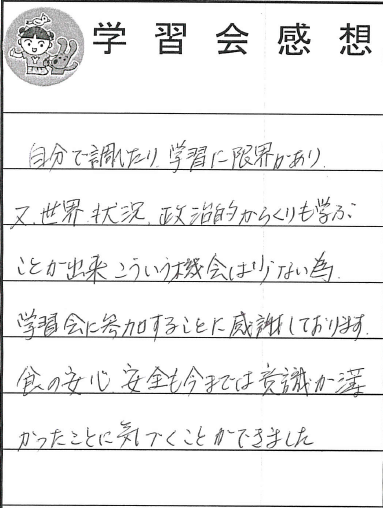 学習会感想
自分で調べたり、学習に限界があり、
又、世界状況、政治的からくりも学ぶ
ことが出来こういう機会は少ない為、
学習会に参加することに感謝しております。
食の安心、安全も今までは意識が薄
かったことに気づくことができました